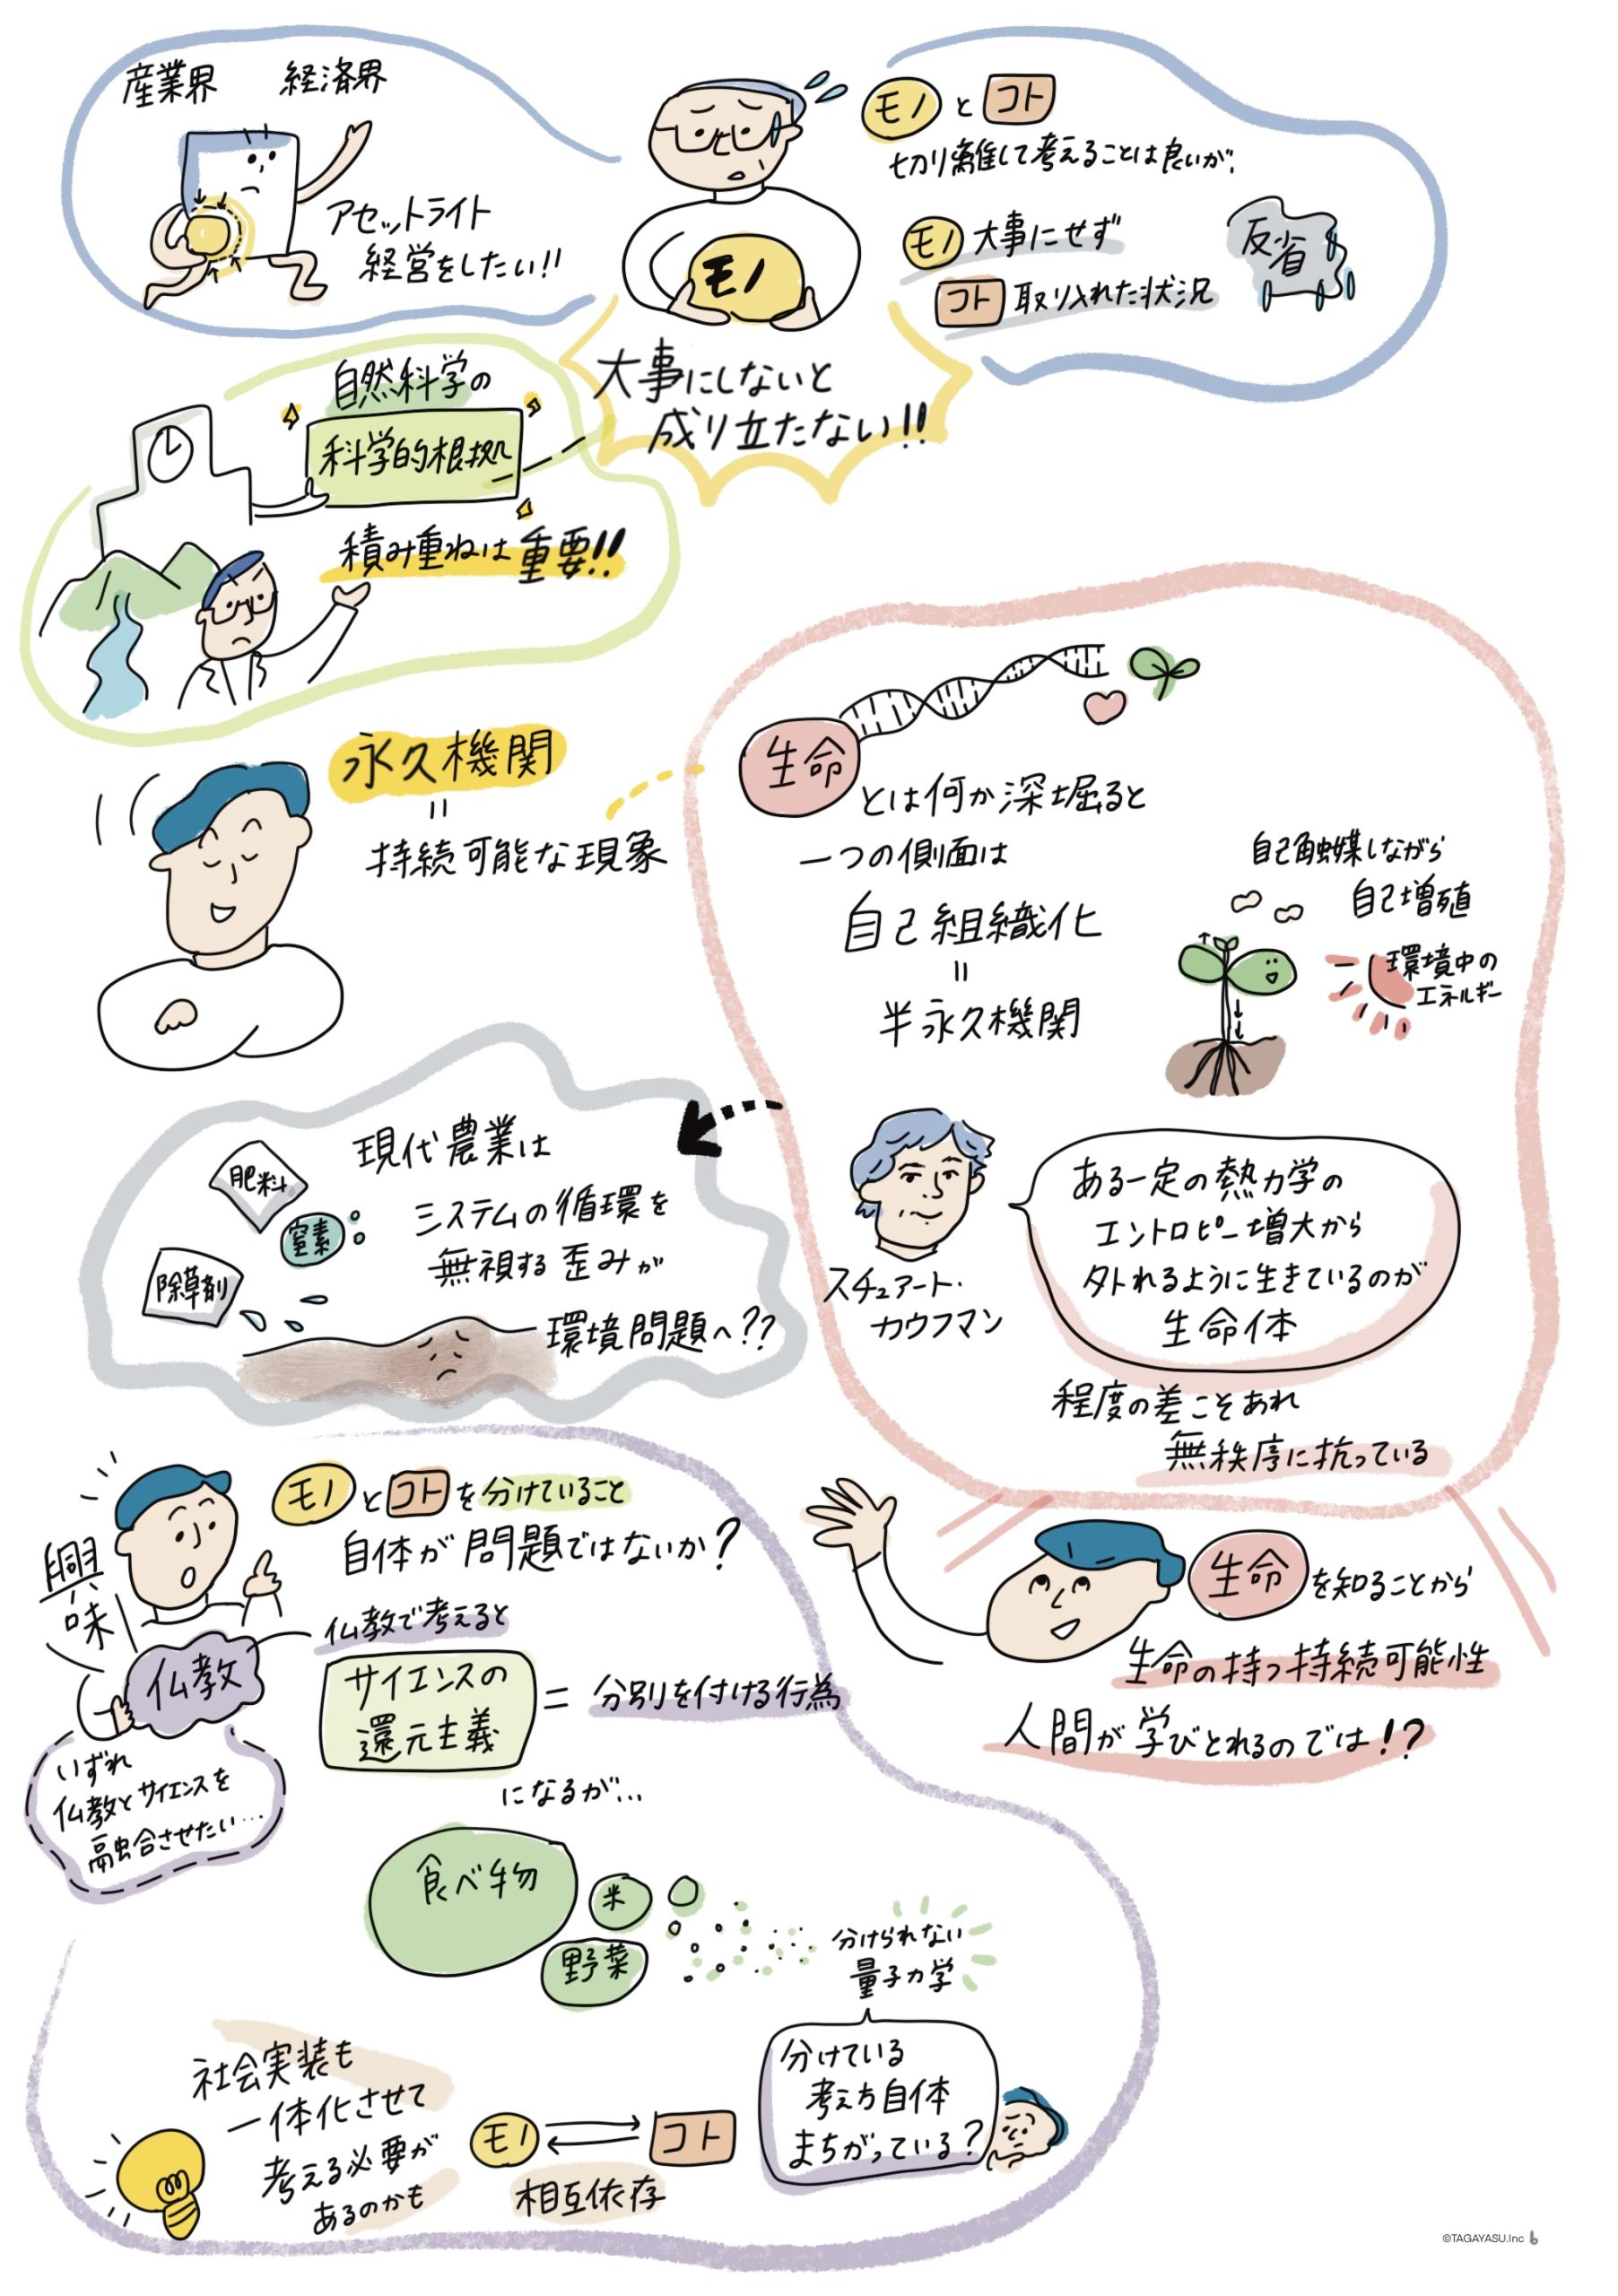 産業界 経済界
アセットライト
経営をしたい!!
モノ
大事にしないと
成り立たない!!
モノ と コト
切り離して考えることは良いが、
モノ 大事にせず
コト 取り入れた状況
反省
自然科学の
科学的根拠
積み重ねは重要!!
永久機関
=
持続可能な現象
生命
とは何か深堀ると
一つの側面は
自己組織化
=
半永久機関
自己触媒しながら
自己増殖
環境中の
エネルギー
スチュアート・
カウフマン
ある一定の熱力学の
エントロピー増大から
外れるように生きているのが
生命体
程度の差こそあれ
無秩序に抗っている
現代農業は
システムの循環を
無視する歪みが
環境問題へ??
肥料
窒素
除草剤
生命 を知ることから
生命の持つ持続可能性
人間が学びとれるのでは!?
モノ と コト を分けていること
自体が問題ではないか?
興味
仏教
仏教で考えると
サイエンスの
還元主義
= 分別を付ける行為
になるが…
いずれ
仏教とサイエンスを
融合させたい…
食べ物
米
野菜
分けられない
量子力学
分けている
考え方自体
まちがっている?
社会実装も
一体化させて
考える必要が
あるのかも
モノ コト
相互依存
©TAGAYASU.Inc